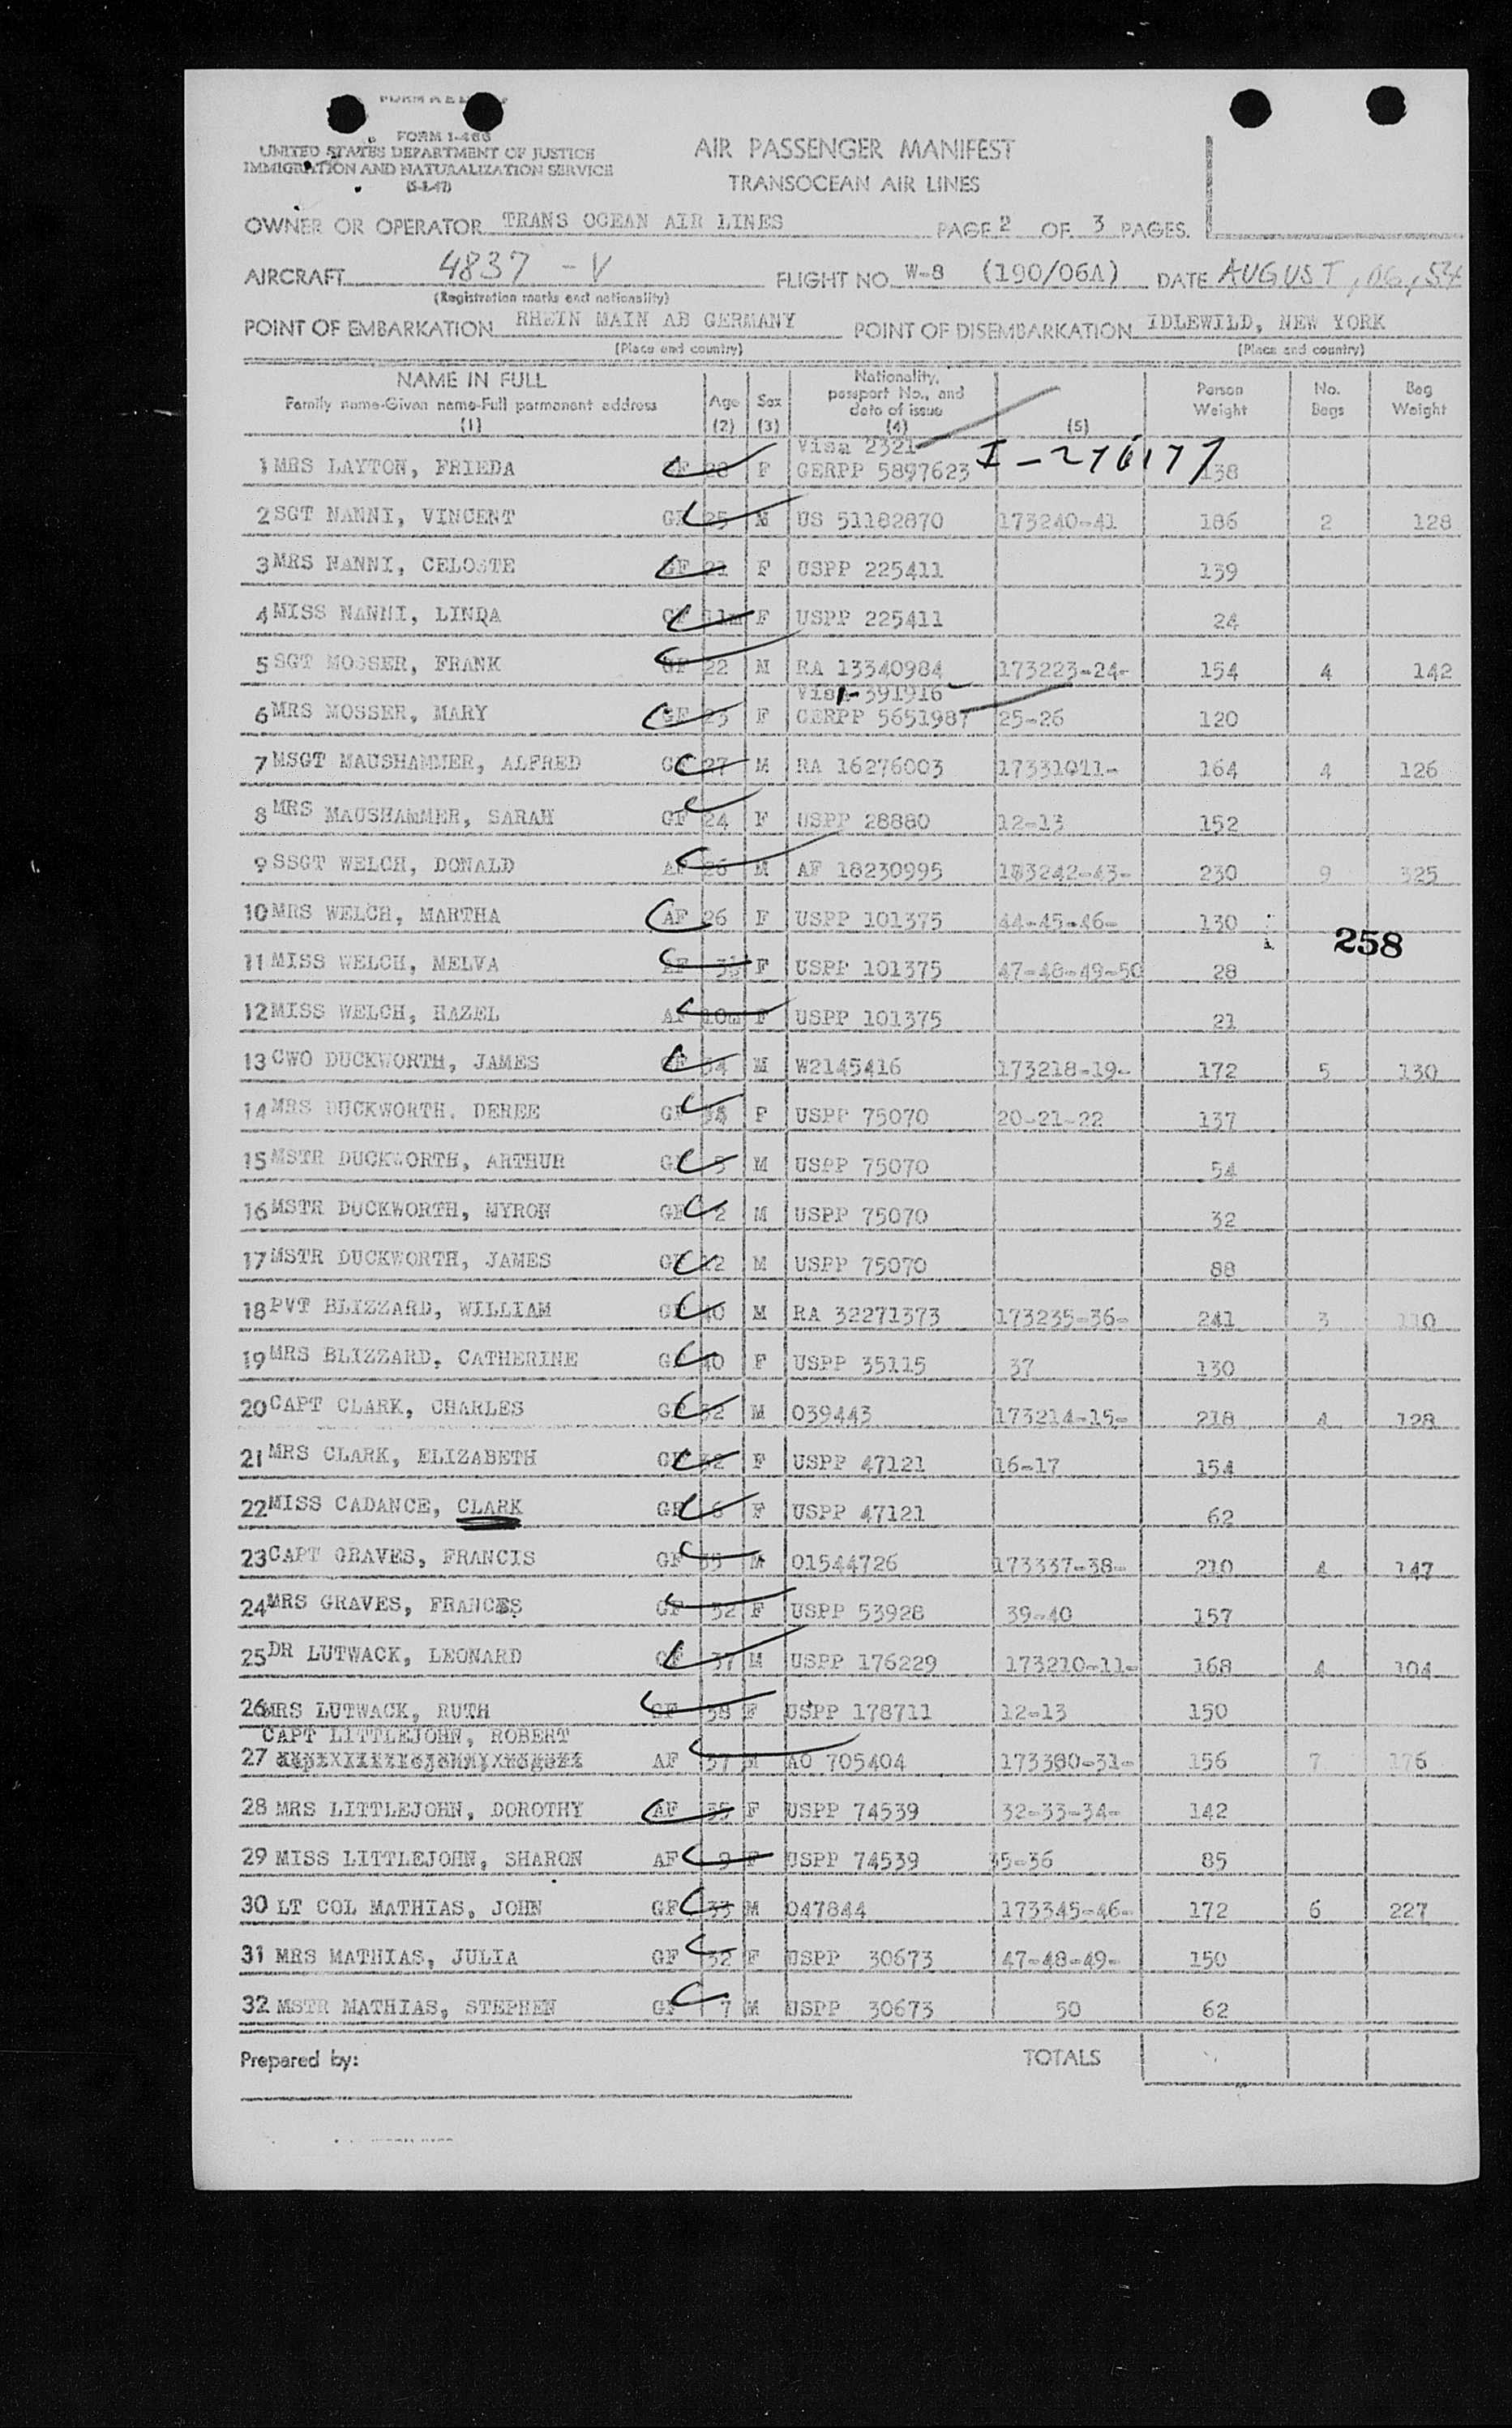 FORM I-466
UNITED STATES DEPARTMENT OF JUSTICE
IMMIGRATION AND NATURALIZATION SERVICE
(5-1-47)
AIR PASSENGER MANIFEST
TRANSOCEAN AIR LINES
OWNER OR OPERATOR TRANS OCEAN AIR LINES PAGE 2 OF 3 PAGES.
AIRCRAFT 4837 - V FLIGHT NO. W-8 (190/06A) DATE AUGUST, 06, 54
(Registration marks and nationality)
POINT OF EMBARKATION RHEIN MAIN AB GERMANY POINT OF DISEMBARKATION IDLEWILD, NEW YORK
(Place and country) (Place and country)
NAME IN FULL Family name-Given name-Full permanent address (1) Age (2) Sex (3) Nationality, passport No., and date of issue (4) (5) Person Weight No. Bags Bag Weight
Visa 2321
1 MRS LAYTON, FRIEDA GF 28 F GERPP 5897623 I-276177 138
2 SGT NANNI, VINCENT GF 25 M US 51182870 173240-41 186 2 128
3 MRS NANNI, CELOSTE GF 21 F USPP 225411 139
4 MISS NANNI, LINDA GF 11m F USPP 225411 24
5 SGT MOSSER, FRANK GF 22 M RA 13340984 173223-24- 154 4 142
Visa-391916
6 MRS MOSSER, MARY GF 23 F GERPP 5651987 25-26 120
7 MSGT MAUSHAMMER, ALFRED GF 27 M RA 16276003 17331011- 164 4 126
8 MRS MAUSHAMMER, SARAH GF 24 F USPP 28880 12-13 152
9 SSGT WELCH, DONALD AF 26 M AF 18230995 173242-43- 230 9 325
10 MRS WELCH, MARTHA AF 26 F USPP 101375 44-45-46- 130
258
11 MISS WELCH, MELVA AF F USPP 101375 47-48-49-50 28
12 MISS WELCH, HAZEL AF 10m F USPP 101375 21
13 CWO DUCKWORTH, JAMES GF 34 M W2145416 173218-19- 172 5 130
14 MRS DUCKWORTH. DEREE GF 34 F USPP 75070 20-21-22 137
15 MSTR DUCKWORTH, ARTHUR GF 5 M USPP 75070 54
16 MSTR DUCKWORTH, MYRON GF 2 M USPP 75070 32
17 MSTR DUCKWORTH, JAMES GF 12 M USPP 75070 88
18 PVT BLIZZARD, WILLIAM GF 40 M RA 32271373 173235-36- 241 3 110
19 MRS BLIZZARD, CATHERINE GF 40 F USPP 35115 37 130
20 CAPT CLARK, CHARLES GF 32 M O39443 173214-15- 218 4 128
21 MRS CLARK, ELIZABETH GF 32 F USPP 47121 16-17 154
22 MISS CADANCE, CLARK GF 6 F USPP 47121 62
23 CAPT GRAVES, FRANCIS GF 35 M O1544726 173337-38- 210 4 147
24 MRS GRAVES, FRANCES GF 32 F USPP 53928 39-40 157
25 DR LUTWACK, LEONARD GF 37 M USPP 176229 173210-11- 168 4 104
26 MRS LUTWACK, RUTH GF 38 F USPP 178711 12-13 150
CAPT LITTLEJOHN, ROBERT
27 AF 37 M AO 705404 173380-31- 156 7 176
28 MRS LITTLEJOHN, DOROTHY AF 35 F USPP 74539 32-33-34- 142
29 MISS LITTLEJOHN, SHARON AF 9 F USPP 74539 35-36 85
30 LT COL MATHIAS, JOHN GF 33 M O47844 173345-46- 172 6 227
31 MRS MATHIAS, JULIA GF 32 F USPP 30673 47-48-49- 150
32 MSTR MATHIAS, STEPHEN GF 7 M USPP 30673 50 62
Prepared by: TOTALS